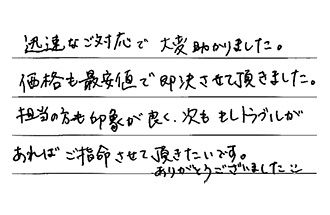 迅速なご対応で 大変助かりました。
価格も最安値で即決させて頂きました。
担当の方も印象が良く、次も もしトラブルが
あれば ご指命させて頂きたいです。
ありがとうございました